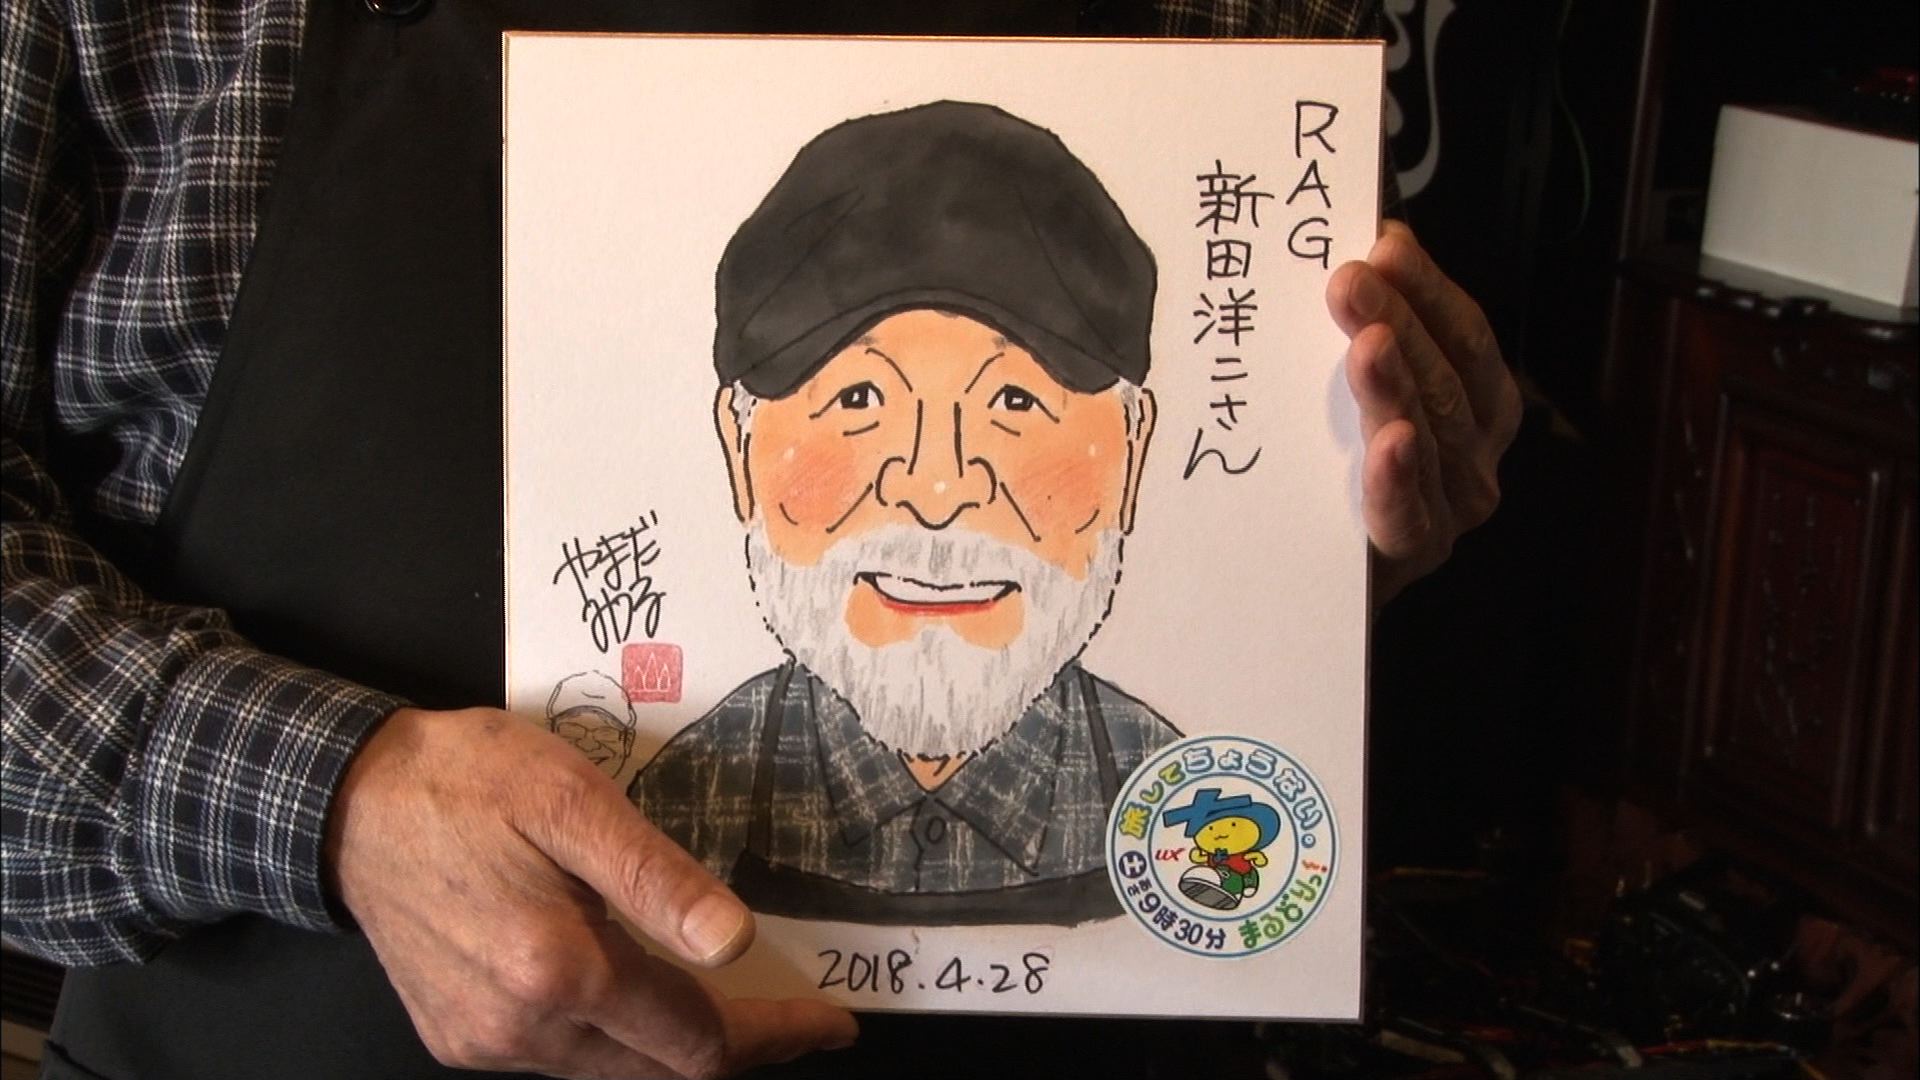 RAG
新田洋二さん
やまだ
みつる
旅してちょうない。
まるどりっ!
UX
土 あさ9時30分
2018.4.28